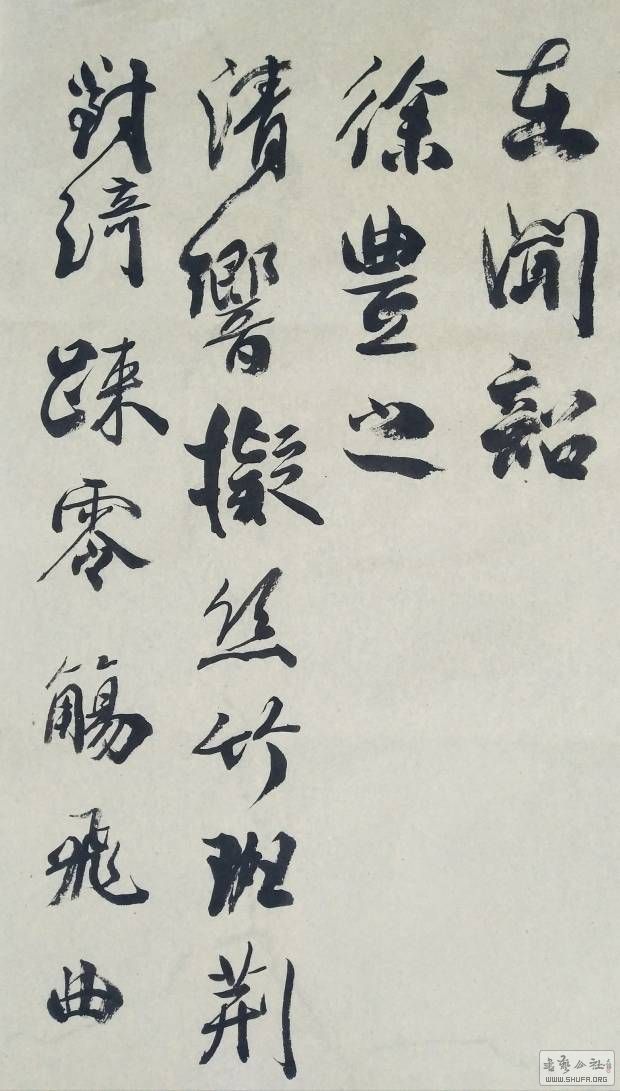 在聞韶
徐豐之
清響擬絲竹班荆
對綺踈零觴飛曲
WWW.SHUFA.ORG